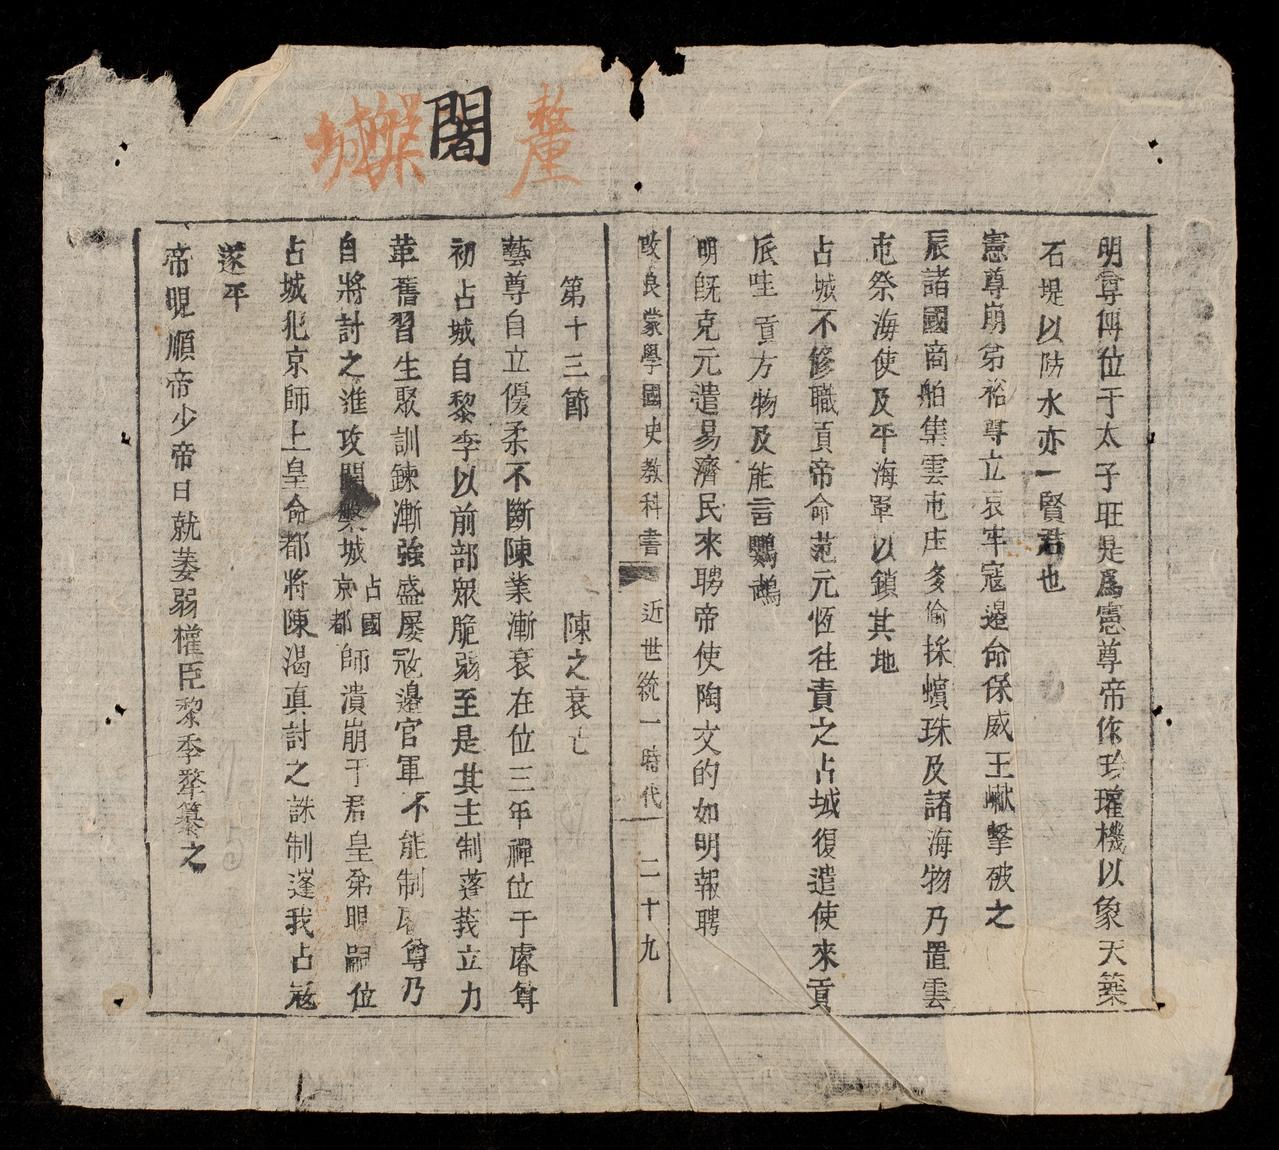 釐 闍 槃城
明尊傳位于太子旺是爲憲尊帝作玲瓏機以象天築
石堤以防水亦一賢君也
憲尊崩弟裕尊立哀牢寇邊命保威王𪩘擊破之
辰諸國商舶集雲屯庄多偷採蠙珠及諸海物乃置雲
屯祭海使及平海軍以鎖其地
占城不修職貢帝命范元恆往責之占城復遣使來貢
底哇貢方物及能言鸚鵡
明既克元遣易濟民來聘帝使陶文的如明報聘
改良蒙學國史教科書 近世統一時代 二十九
第十三節 陳之衰亡
藝尊自立優柔不斷陳業漸衰在位三年禪位于睿尊
初占城自黎李以前部衆脆弱至是其主制蓬莪立力
革舊習生聚訓鍊漸強盛屡寇邊官軍不能制睿尊乃
自將討之進攻闍槃城占國京都師潰崩于君皇弟晛嗣位
占城犯京師上皇命都將陳渴真討之誅制蓬我占寇
遂平
帝晛順帝少帝日就萎弱權臣黎季犛簒之